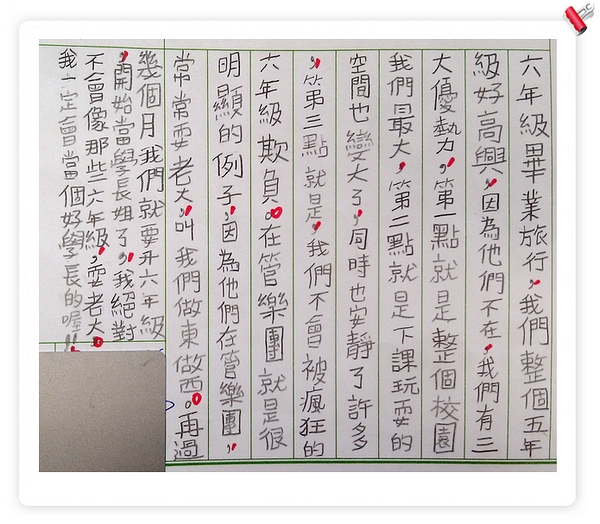 六年級畢業旅行，我們整個五年
級好高興，因為他們不在，我們有三
大優勢，第一點就是整個校園
我們最大，第二點就是下課玩耍的
空間也變大了，同時也安靜了許多
，第三點就是，我們不會被瘋狂的
六年級欺負。在管樂團就是很
明顯的例子，因為他們在管樂團，
常常耍老大，叫我們做東做西。再過
幾個月我們就要升六年級
，開始當學長姐了，我絕對
不會像那些六年級，耍老大。
我一定會當個好學長的喔!!